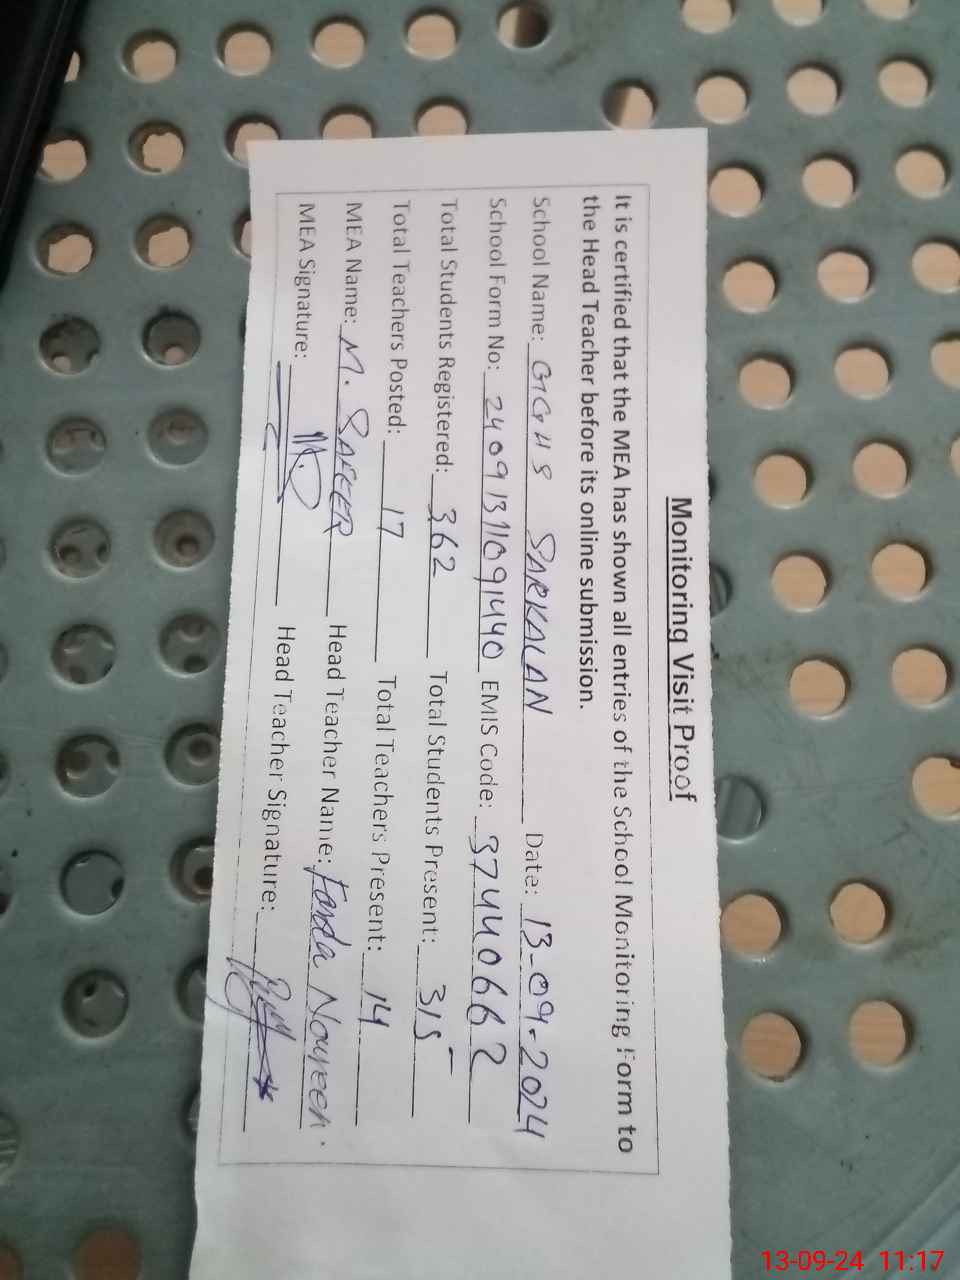 Monitoring Visit Proof
It is certified that the MEA has shown all entries of the School Monitoring Form to
the Head Teacher before its online submission.
School Name: GGHS SARKALAN Date: 13-09-2024
School Form No: 24091311091440 EMIS Code: 37440662
Total Students Registered: 362 Total Students Present: 315
Total Teachers Posted: 17 Total Teachers Present: 14
MEA Name: M. SAFEER Head Teacher Name: Farda Noureen.
MEA Signature: Head Teacher Signature:
13-09-24 11:17